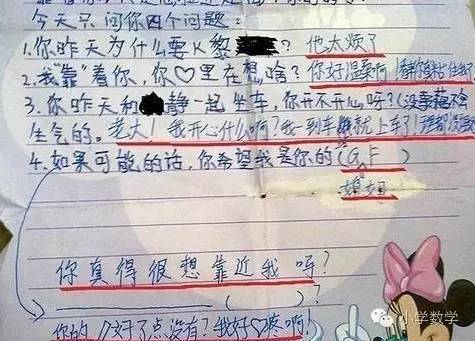 今天只问你四个问题：
1.你昨天为什么要K黎？他太烦了
2.我"靠"着你，你♡里在想啥？你好温柔啊！
3.你昨天和静一起坐车，你开不开心呀？(没事我不会
生气的。老大！我开心什么啊？我一到车就上车了！
4.如果可能的话，你希望我是你的(G F )
姐姐
你真得很想靠近我吗？
( )？
你的 好了点没有？我好♡疼啊！
小学数学